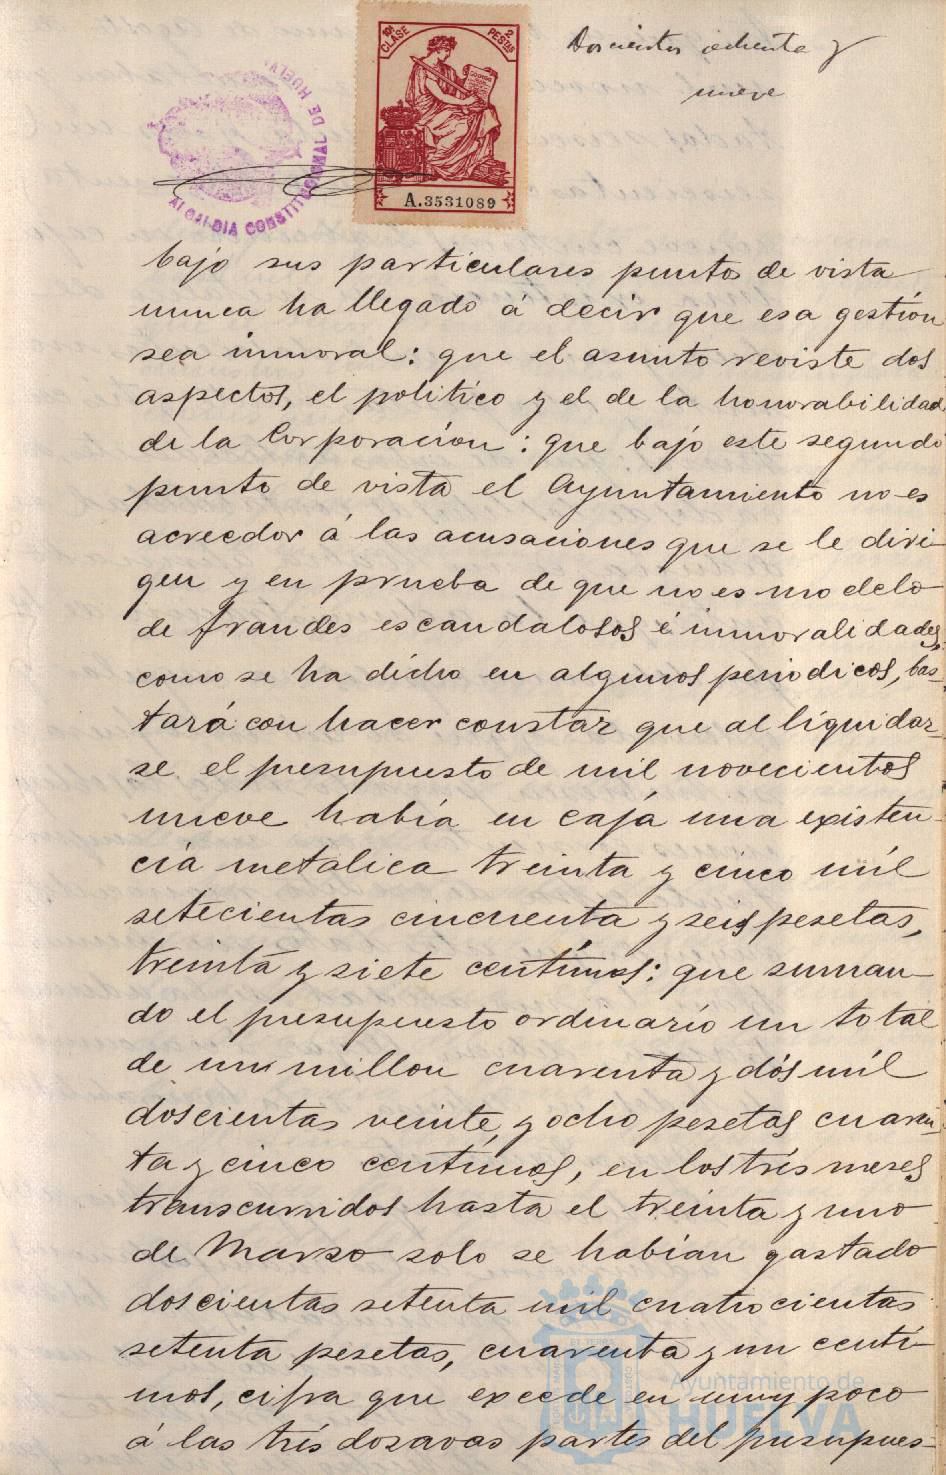 Doscientos ochenta y
nueve
10ª CLASE
2 PESETAS
A.3531089
ALCALDIA CONSTITUCIONAL DE HUELVA
bajo sus particulares puntos de vista
nunca ha llegado á decir que esa gestion
sea inmoral: que el asunto reviste dos
aspectos, el politico y el de la honorabilidad
de la Corporacion: que bajo este segundo
punto de vista el Ayuntamiento no es
acreedor á las acusaciones que se le diri-
gen y en prueba de que no es modelo
de fraudes escandalosos é inmoralidades,
como se ha dicho en algunos periodicos, bas-
tará con hacer constar que al liquidar-
se el presupuesto de mil novecientos
nueve había en caja una existen-
cia metalica treinta y cinco mil
setecientas cincuenta y seis pesetas,
treinta y siete centimos: que suman-
do el presupuesto ordinario un total
de un millon cuarenta y dós mil
doscientas veinte y ocho pesetas cuaren-
ta y cinco centimos, en los trés meses
transcurridos hasta el treinta y uno
de Marzo solo se habian gastado
doscientas setenta mil cuatrocientas
setenta pesetas, cuarenta y un centi-
mos, cifra que excede en muy poco
á las trés dozavas partes del presupues-
Ayuntamiento de
HUELVA